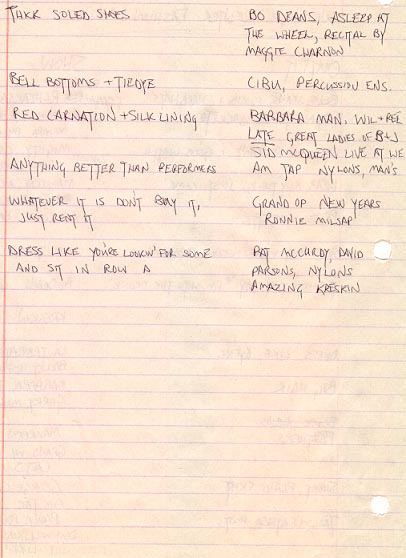 THICK SOLED SHOES
BO DEANS, ASLEEP AT
THE WHEEL, RECITAL BY
MAGGIE CHARNON
BELL BOTTOMS + TIEDYE
CIBU, PERCUSSION ENS.
RED CARNATION + SILK LINING
BARBARA MAN, WIL + REE
LATE GREAT LADIES OF B+J
SID MCQUEEN LIVE AT WE
ANYTHING BETTER THAN PERFORMERS
AM TAP NYLONS, MAN'S
WHATEVER IT IS DON'T BUY IT,
JUST RENT IT
GRAND OP NEW YEARS
RONNIE MILSAP
DRESS LIKE YOU'RE LOOKIN' FOR SOME
AND SIT IN ROW A
PAT MCCURDY, DAVID
PARSONS, NYLONS
AMAZING KRESKIN